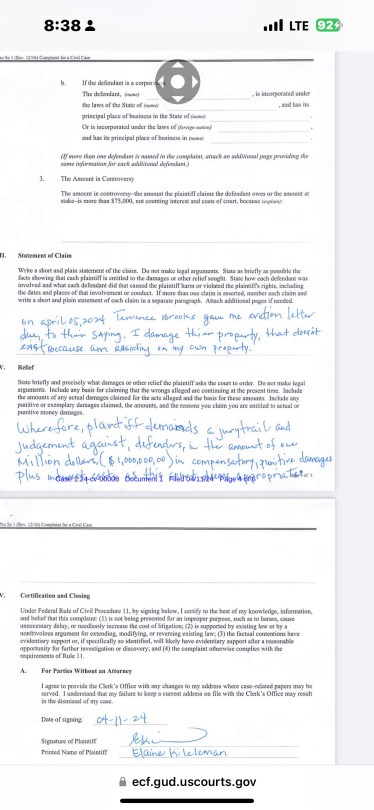 8:38
LTE 92
Pro Se 1 (Rev. 12/16) Complaint for a Civil Case
b. If the defendant is a corporation
The defendant, (name) , is incorporated under
the laws of the State of (name) , and has its
principal place of business in the State of (name) .
Or is incorporated under the laws of (foreign nation) ,
and has its principal place of business in (name) .
(If more than one defendant is named in the complaint, attach an additional page providing the
same information for each additional defendant.)
3. The Amount in Controversy
The amount in controversy–the amount the plaintiff claims the defendant owes or the amount at
stake–is more than $75,000, not counting interest and costs of court, because (explain):
II. Statement of Claim
Write a short and plain statement of the claim. Do not make legal arguments. State as briefly as possible the
facts showing that each plaintiff is entitled to the damages or other relief sought. State how each defendant was
involved and what each defendant did that caused the plaintiff harm or violated the plaintiff's rights, including
the dates and places of that involvement or conduct. If more than one claim is asserted, number each claim and
write a short and plain statement of each claim in a separate paragraph. Attach additional pages if needed.
on april 05, 2024 Terrence Brooks gave me letter
due, to their saying. I damage thier property, that doesn't
because am residing on my own property.
V. Relief
State briefly and precisely what damages or other relief the plaintiff asks the court to order. Do not make legal
arguments. Include any basis for claiming that the wrongs alleged are continuing at the present time. Include
the amounts of any actual damages claimed for the acts alleged and the basis for these amounts. Include any
punitive or exemplary damages claimed, the amounts, and the reasons you claim you are entitled to actual or
punitive money damages.
Wherefore, plaintiff demands a jury trail and
judgement against, in the amount of one
Million dollars, ($1,000,000,00) in compensatory, punitive damages
plus as this
Document 1 Filed 04/11/24 Page 4 of 6
Pro Se 1 (Rev. 12/16) Complaint for a Civil Case
V. Certification and Closing
Under Federal Rule of Civil Procedure 11, by signing below, I certify to the best of my knowledge, information,
and belief that this complaint: (1) is not being presented for an improper purpose, such as to harass, cause
unnecessary delay, or needlessly increase the cost of litigation; (2) is supported by existing law or by a
nonfrivolous argument for extending, modifying, or reversing existing law; (3) the factual contentions have
evidentiary support or, if specifically so identified, will likely have evidentiary support after a reasonable
opportunity for further investigation or discovery; and (4) the complaint otherwise complies with the
requirements of Rule 11.
A. For Parties Without an Attorney
I agree to provide the Clerk's Office with any changes to my address where case-related papers may be
served. I understand that my failure to keep a current address on file with the Clerk's Office may result
in the dismissal of my case.
Date of signing: 04-11-24
Signature of Plaintiff
Printed Name of Plaintiff Elaine
ecf.gud.uscourts.gov